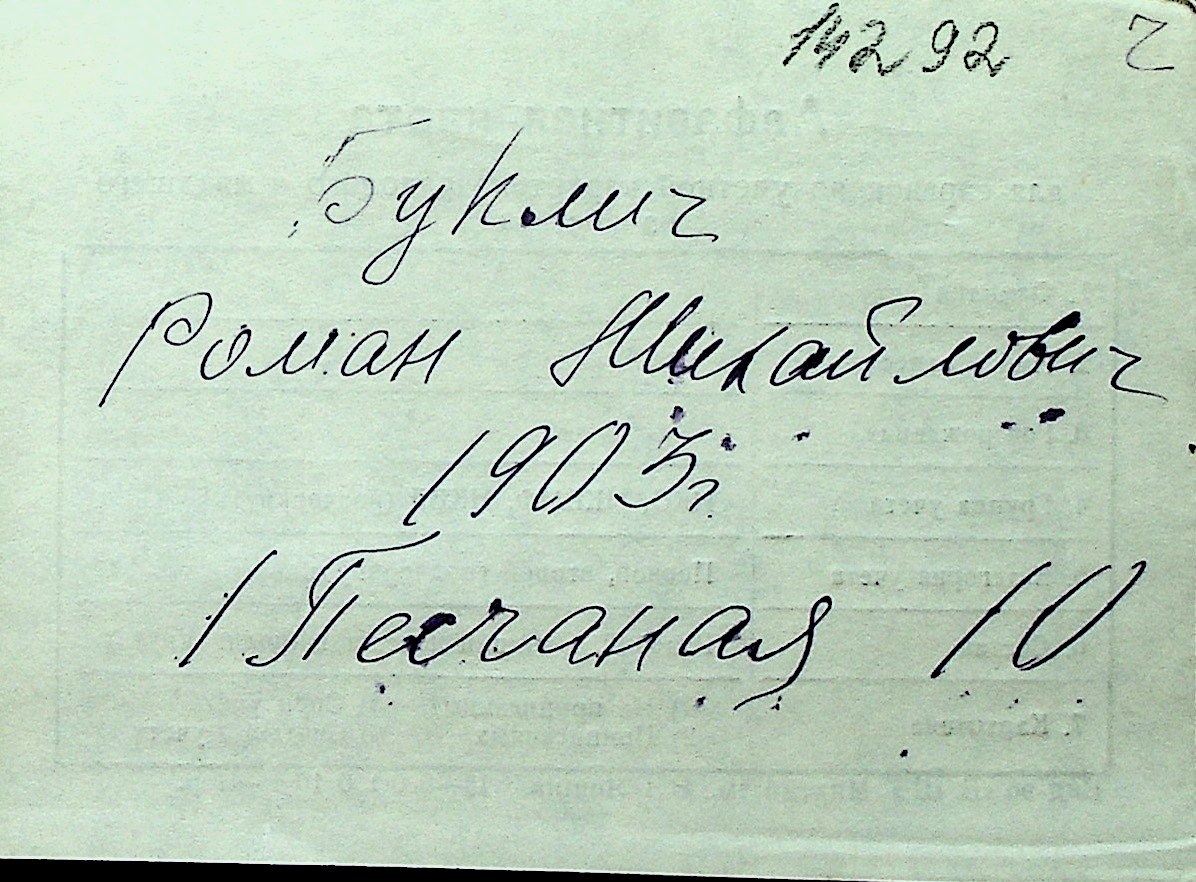 14292 ч
Буклич
Роман Михайлович
1903г
1 Песчаная 10